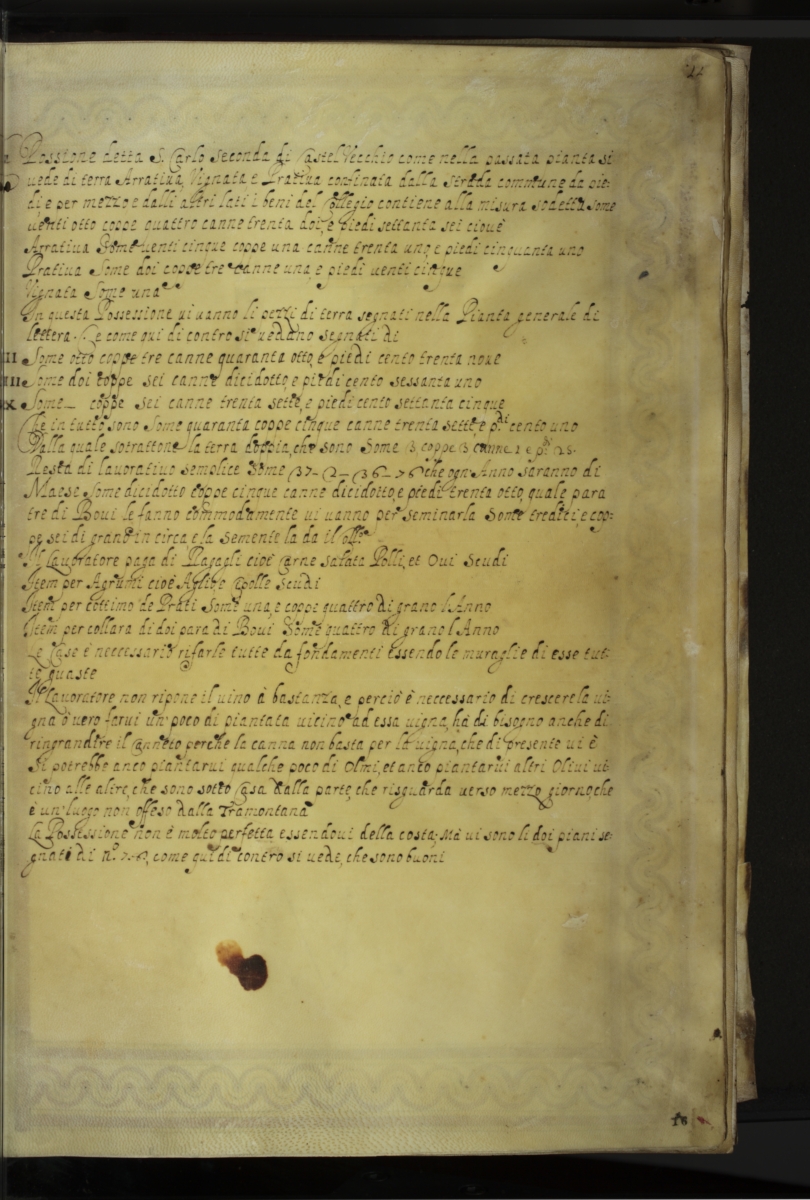 22
Possione detta S. Carlo Seconda di Castel Vecchio come nella passata pianta si
uede di terra Arratiua, Vignata e Pratiua confinata dalla Strada commune da pie-
di e per mezzo e dalli altri lati i beni del Collegio contiene alla misura sodetta some
uenti otto coppe quattro canne trenta doi, e piedi settanta sei ciouè
Arratiua Some uenti cinque coppe una canne trenta uno, e piedi cinquanta uno
Pratiua Some doi coppe tre canne una, e piedi uenti cinque
Vignata Some una
In questa Possessione ui uanno li pezzi di terra segnati nella Pianta generale di
lettera. Le come qui di contro si uedano segnati di
III Some otto coppe tre canne quaranta otto, e piedi cento trenta noue
IIII Some doi coppe sei canne dicidotto, e piedi cento sessanta uno
IX Some – coppe sei canne trenta sette, e piedi cento settanta cinque
Che in tutto sono Some quaranta coppe cinque canne trenta sette e pdi cento uno
Dalla quale sotrattone la terra doppia, che sono Some 3 coppe 3 canne 1 e pdi 25.
Resta di lauoratiuo semplice Some 37–2–36–76 che ogn Anno saranno di
Maese Some dicidotto coppe cinque canne dicidotto, e piedi trenta otto, quale para
tre di Boui le fanno commodamente ui uanno per seminarla Some tredici, e cop-
pe sei di grano in circa e la Semente la da il
Il Lauoratore paga di Regagli cioè Carne Salata Polli, et Oui Scudi
Item per Agrumi cioè Aglio e Cipolle Scudi
Item per cottimo de Prati Some una, e coppe quattro di grano l'Anno
Item per collara di doi para di Boui Some quattro di grano l'Anno
Le Case è neccessario rifarle tutte da fondamenti essendo le muraglie di esse tut-
te guaste
Il Lauoratore non ripone il uino à bastanza, e perciò è neccessario di crescere la ui-
gna ò uero farui un' poco di piantata uicino ad essa uigna, hà di bisogno anche di
ringrandire il Canneto perche la canna non basta per la uigna, che di presente ui è
Si potrebbe anco piantarui qualche poco di Olmi, et anco piantarui altri Oliui ui-
cino alle altre, che sono sotto Casa dalla parte, che risguarda uerso mezzo giorno, che
è un' luogo non offeso dalla Tramontana
La Possessione non è molto perfetta essendoui della costa; Mà ui sono li doi piani se-
gnati di n.° 7–6, come qui di contro si uede, che sono buoni
16